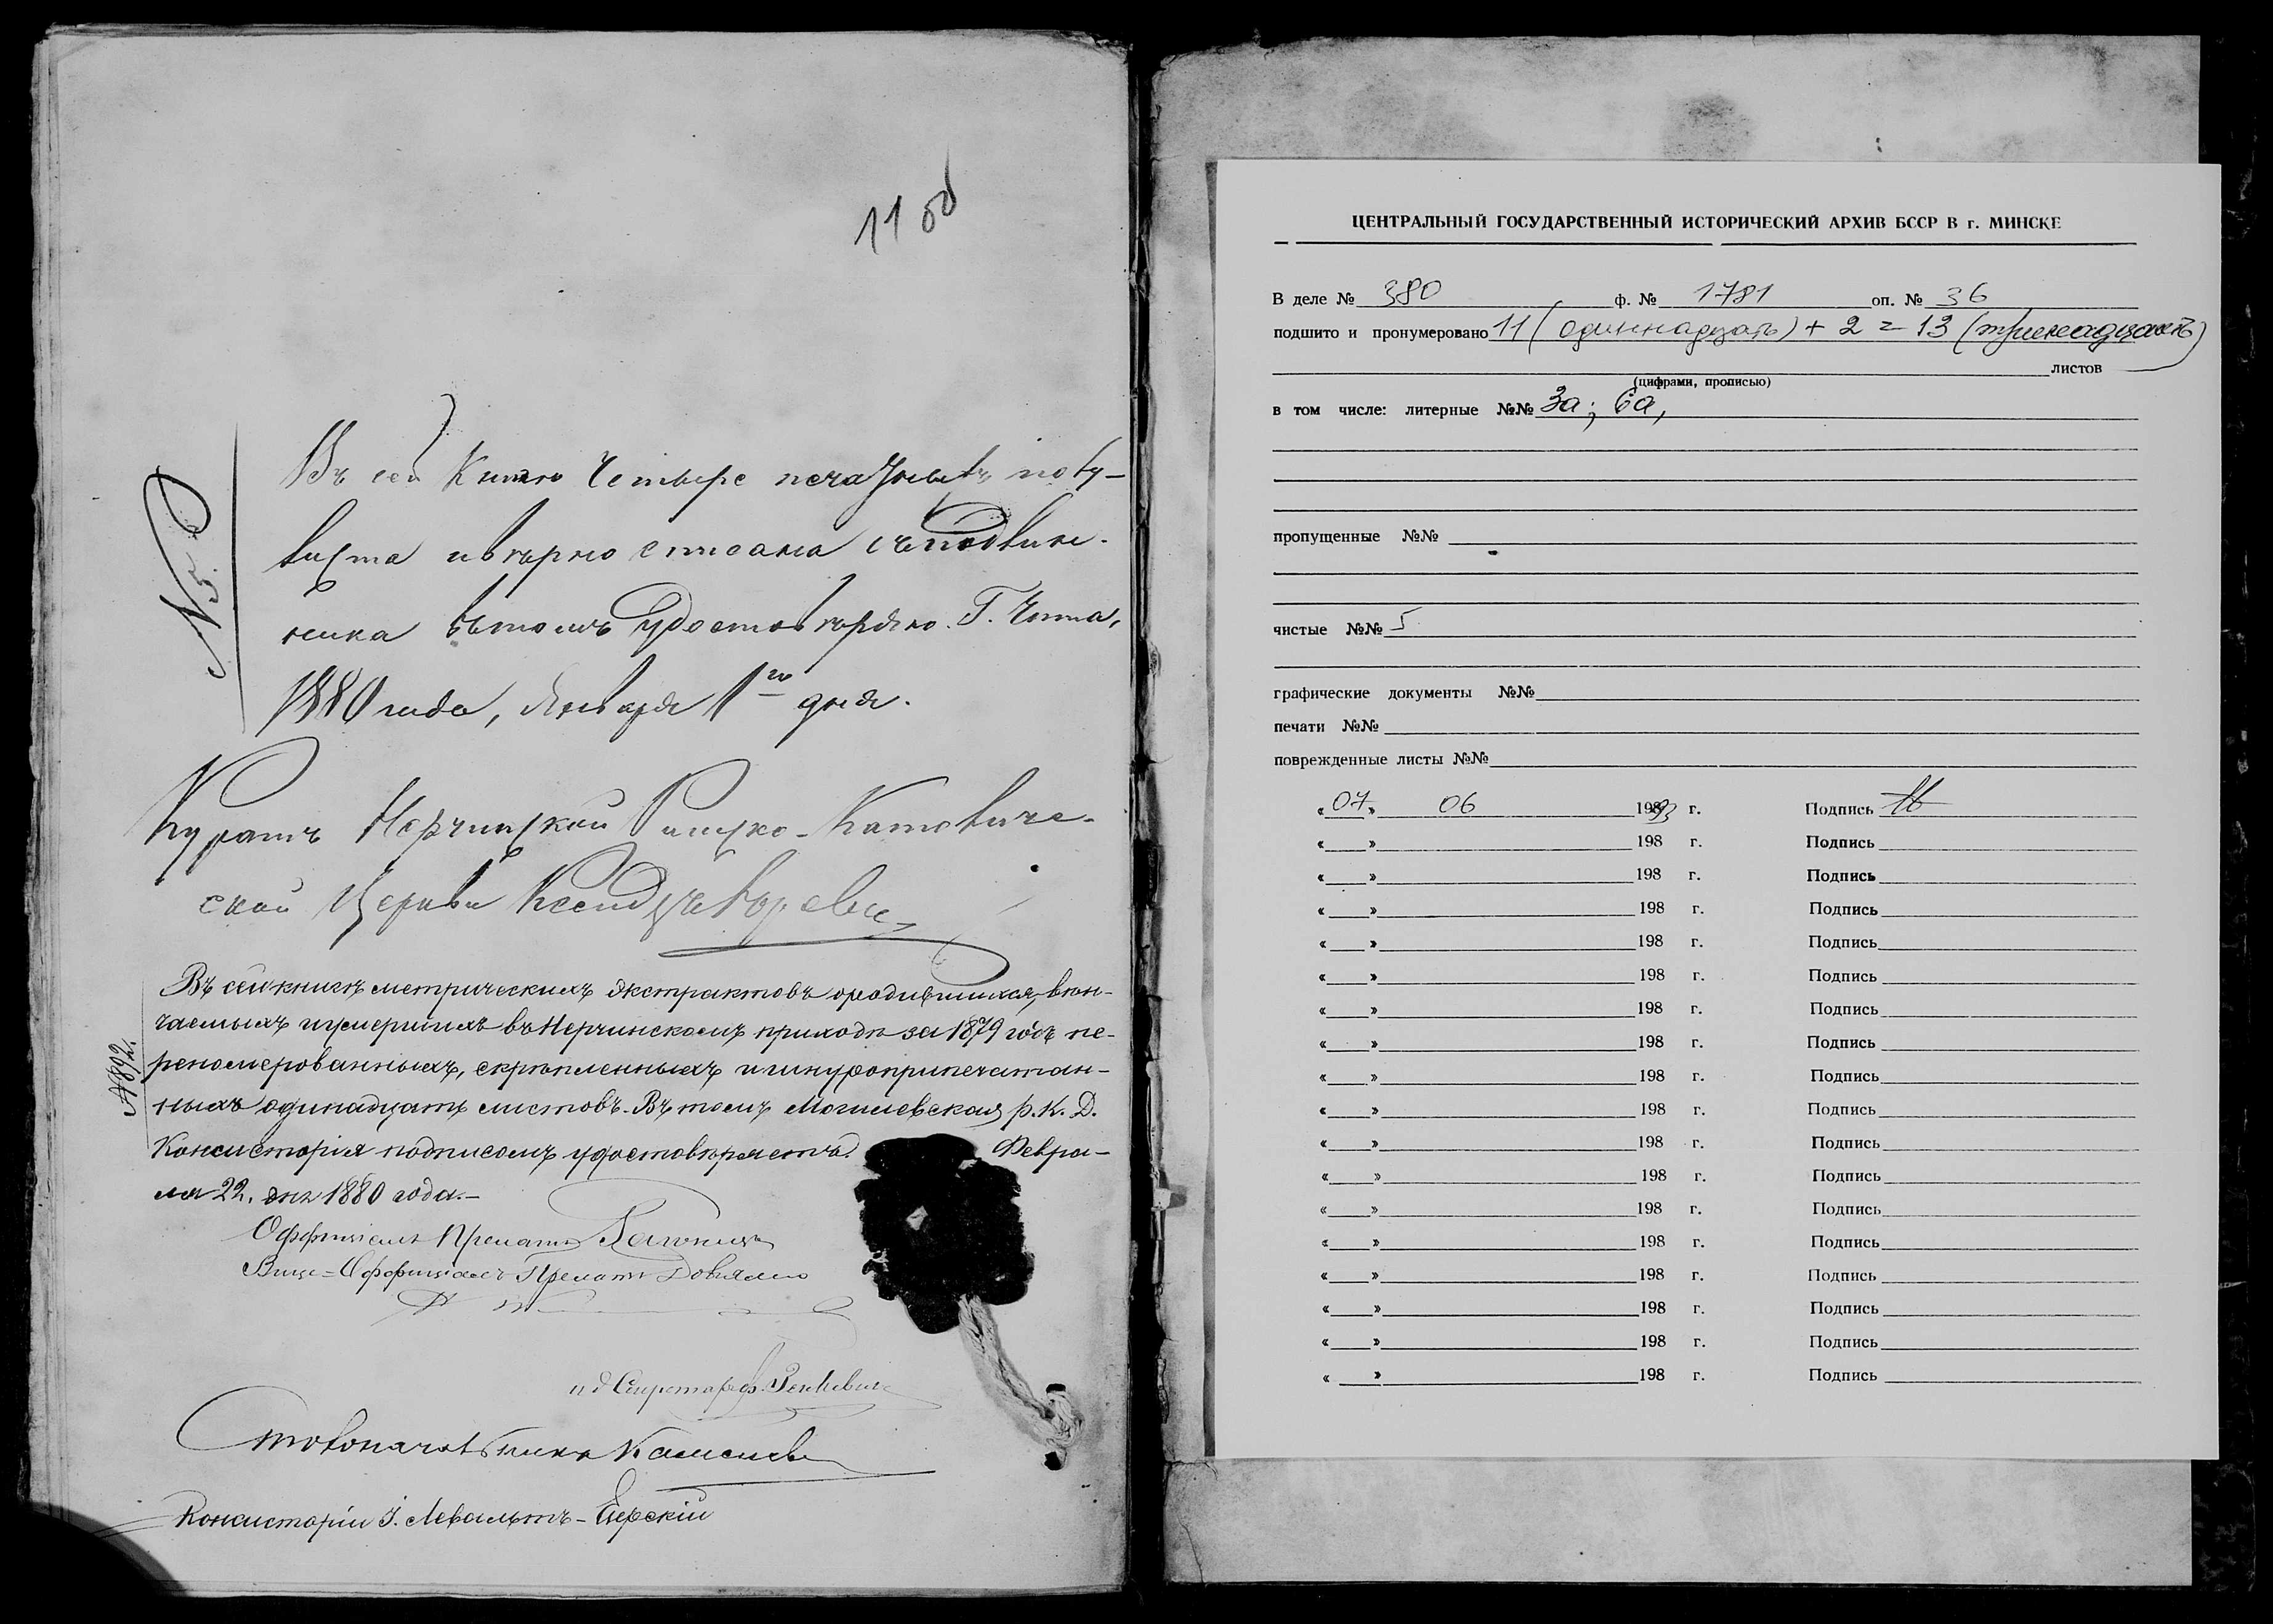 11 об
№ 5.
Въ сей Книгѣ Четыре печатныхъ полу-
листа и вѣрно списана съ подлин-
ника въ томъ удостовѣряю. Г. Чита,
1880 года, Января 1го дня.
Куратъ Нерчинской Римско-Католиче-
ской Церкви Ксендзъ
№ 892.
Въ сей книгѣ метрическихъ экстрактовъ о родившихся, вѣн-
чаемыхъ и умершихъ въ Нерчинскомъ приходѣ за 1879 годъ пе-
реномерованныхъ, скрѣпленныхъ и шнуроприпечатан-
ныхъ одинадцать листовъ. Въ томъ Могилевская р. К. Д.
Консисторія подписомъ удостовѣряетъ. Февра-
ля 22. дня 1880 года.-
Оффиціалъ Прелатъ
Вице-Оффиціалъ Прелатъ Довялло
и д Секретаря
Столоначальникъ
Консисторіи І.
ЦЕНТРАЛЬНЫЙ ГОСУДАРСТВЕННЫЙ ИСТОРИЧЕСКИЙ АРХИВ БССР В г. МИНСКЕ
В деле № 380 ф. № 1781 оп. № 36
подшито и пронумеровано 11 (одиннадцать) + 2 = 13 (тринадцать)
листов
(цифрами, прописью)
в том числе: литерные №№ 3а; 6а,
пропущенные №№
чистые №№ 5
графические документы №№
печати №№
поврежденные листы №№
« 07 » 06 1993 г. Подпись
« » 198 г. Подпись
« » 198 г. Подпись
« » 198 г. Подпись
« » 198 г. Подпись
« » 198 г. Подпись
« » 198 г. Подпись
« » 198 г. Подпись
« » 198 г. Подпись
« » 198 г. Подпись
« » 198 г. Подпись
« » 198 г. Подпись
« » 198 г. Подпись
« » 198 г. Подпись
« » 198 г. Подпись
« » 198 г. Подпись
« » 198 г. Подпись
« » 198 г. Подпись